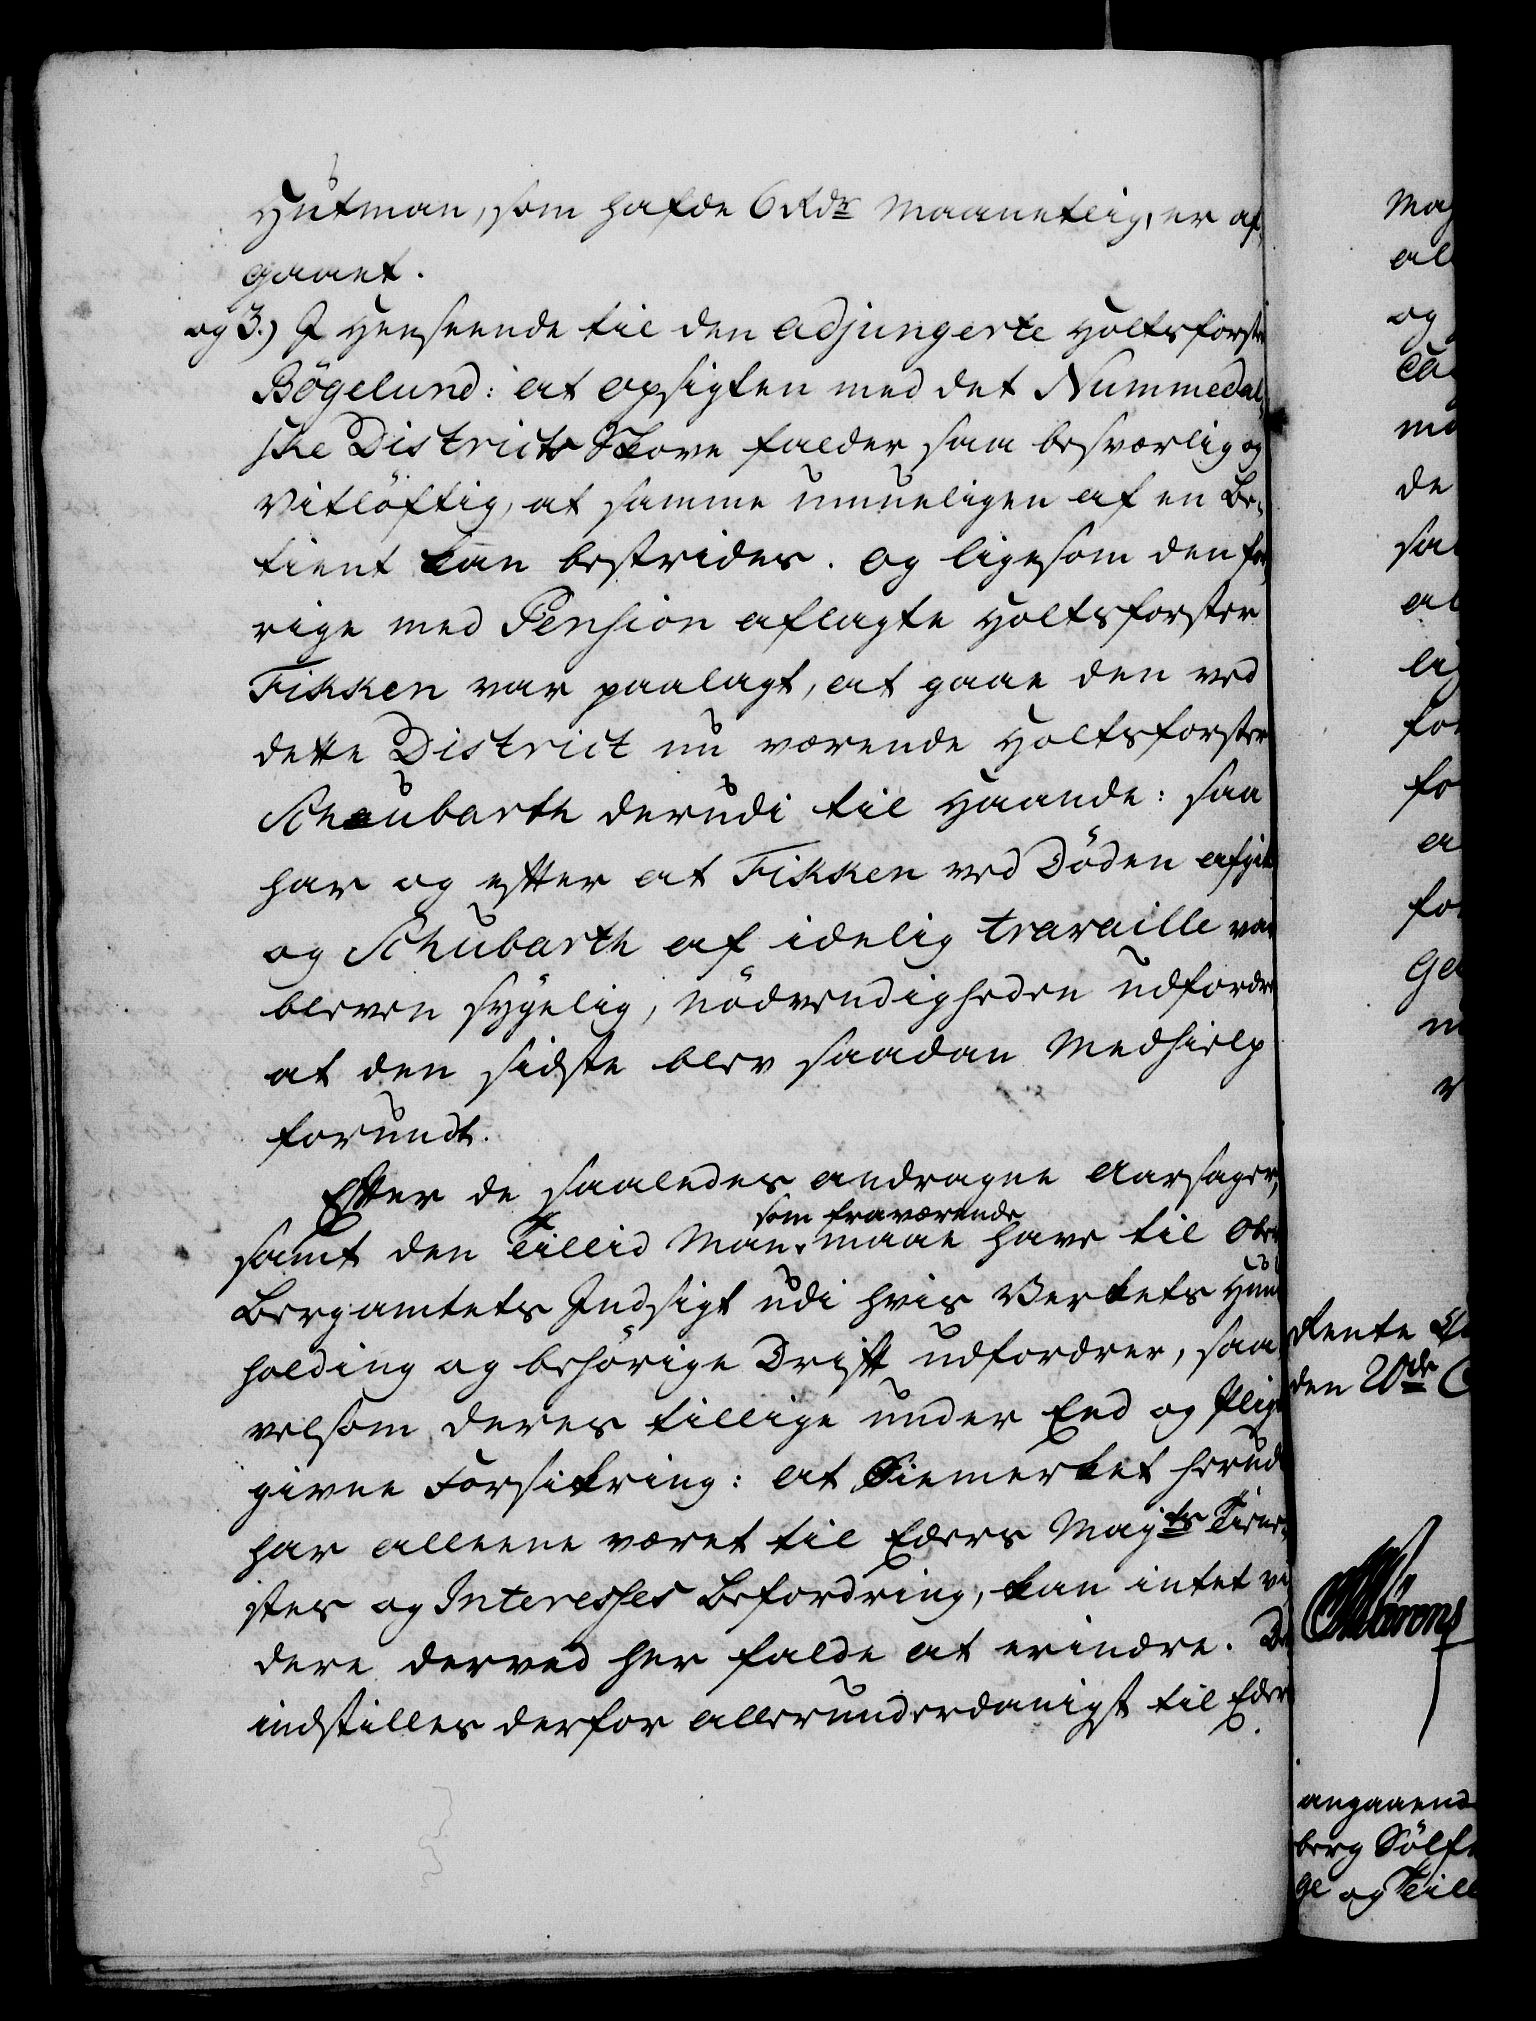 Hutman, som hafde 6 Rdr Maanetlig, er af¬
gaaet.
og 3.) I Henseende til den adjungerte Holtsførster
Bøgelund: at opsigten med det Nummedal¬
ske Districts Skove falder saa besværlig og
vitløftig, at samme umueligen af en Be¬
tient kan bestrides. og ligesom den for¬
rige med Pension aflagte Holtsforster
Fikken var paalagt, at gaae den ved
dette District nu værende Holtsforster
Schubarth derudi til Haande: saa
har og efter at Fikken ved Døden afgik
og Schubarth af idelig travaille var
bleven sygelig, nødvendigheden udfordret
at den sidste blev saadan Medhielp
forundt.
Efter de saaledes andragne Aarsager,
som fraværende
samt den Tillid Man maae have til Ober
Bergamtets Indsigt udi hvis Verkets Huus
holding og behørige Drift udfordrer, saa
velsom deres tillige under Eed og Pligt
givne Forsikring: at Øiemerket herudi
har alleene været til Eders Majts Tiene¬
stes og Interesses Befordring, kan intet vi
dere derved her falde at erindre. De
indstilles derfor allerunderdanigst til Eders
Maj
al
og
ma
de
saa
al
lig
for
fo
a
for
Ge
Rente
den 20de
angaaend
berg Sølf
ge og Till